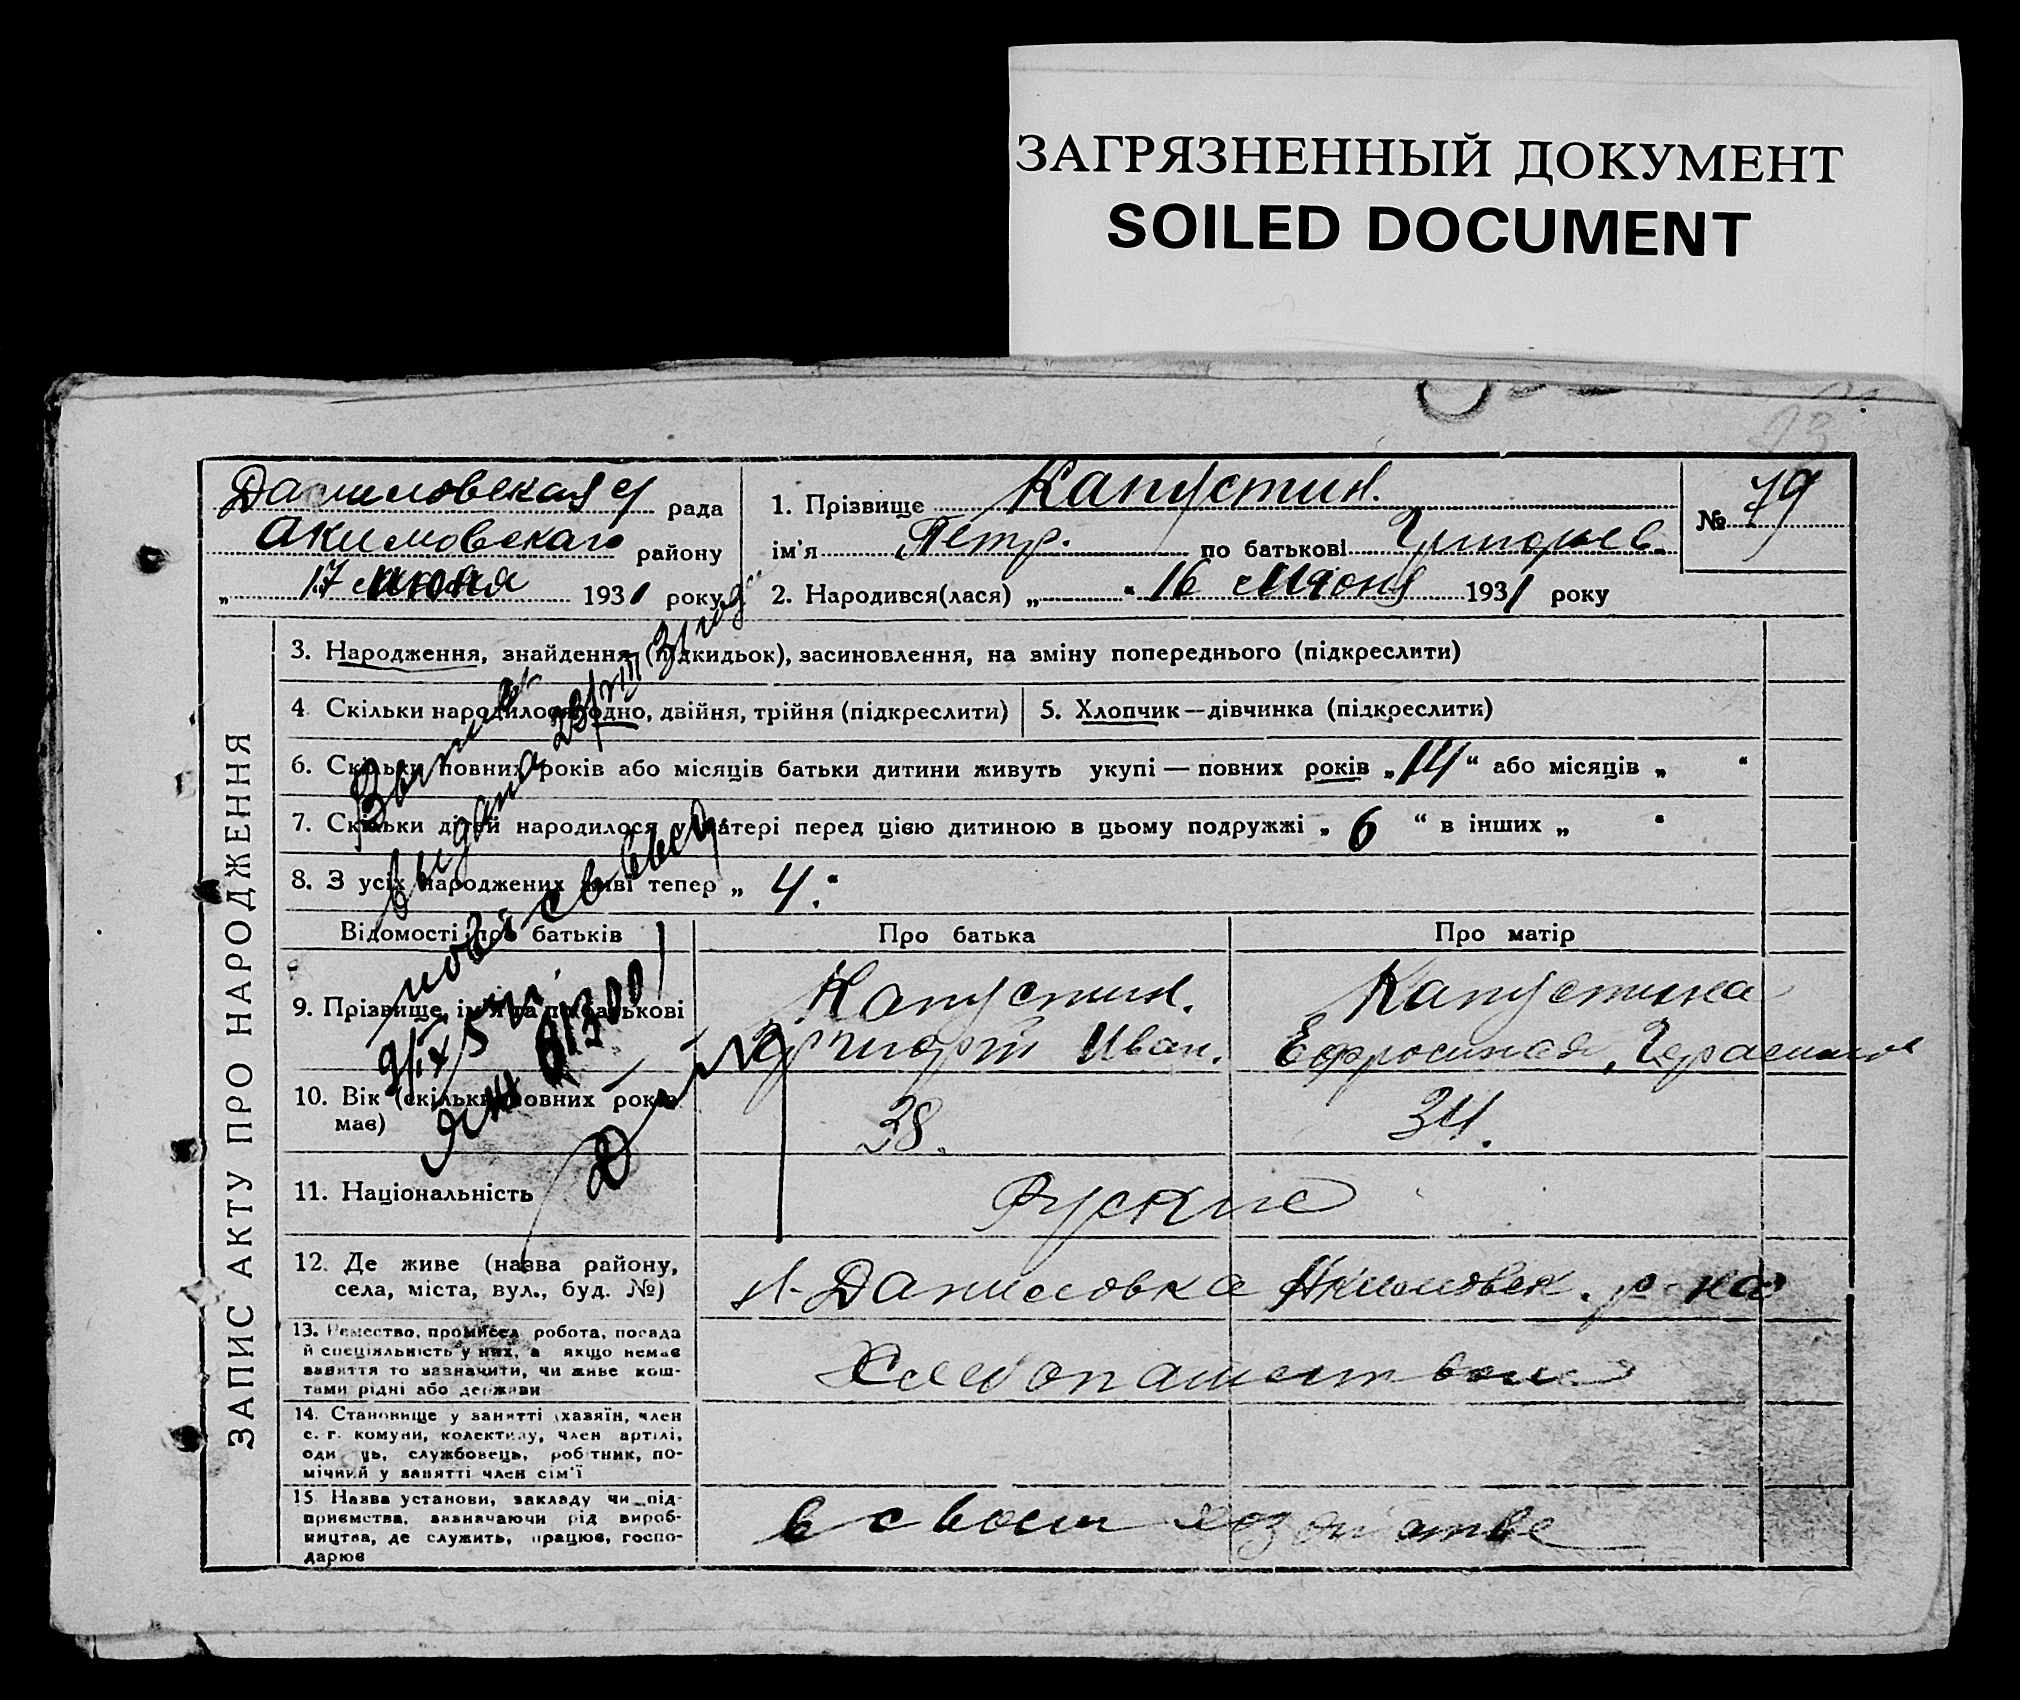 ЗАГРЯЗНЕННЫЙ ДОКУМЕНТ
SOILED DOCUMENT
23
Даниловская с/ рада
Акимовскаго району
„ 17 июня 1931 року
1. Прізвище Капустин.
ім'я Петр. по батькові Григорьев.
№ 79
2. Народився(лася) „ “ 16 Июня 1931 року
ЗАПИС АКТУ ПРО НАРОДЖЕННЯ
3. Народження, знайдення (підкидьок), засиновлення, на зміну попереднього (підкреслити)
4. Скільки народилося: одно, двійня, трійня (підкреслити)
5. Хлопчик—дівчинка (підкреслити)
6. Скільки повних років або місяців батьки дитини живуть укупі — повних років „14“ або місяців „ “
7. Скільки дітей народилося у матері перед цією дитиною в цьому подружжі „ 6 “ в інших „ “
8. З усіх народжених живі тепер „ 4. “
выдана 28/VIII 31 года
Відомості про батьків
Про батька
Про матір
9. Прізвище, ім'я та по батькові
Капустин.
Григорий Иван.
Капустина
Ефросиния, Герасимов
10. Вік (скільки повних років має)
38.
34.
11. Національність
Руские
12. Де живе (назва району,
села, міста, вул., буд. №)
с. Даниловка Акимовск. р-на
13. Ремество, промисел робота, посада
й спеціяльність у них, а якщо немає
заняття то зазначити, чи живе кош-
тами рідні або держави
Хлебопашеством
14. Становище у занятті (хазяїн, член
с. г. комуни, колективу, член артілі,
оди ць, службовець, робітник, по-
мічний у занятті член сім'ї
15. Назва установи, закладу чи під-
приємства, зазначаючи рід вироб-
ництва, де служить, працює, госпо-
дарює
в своем хозяйстве